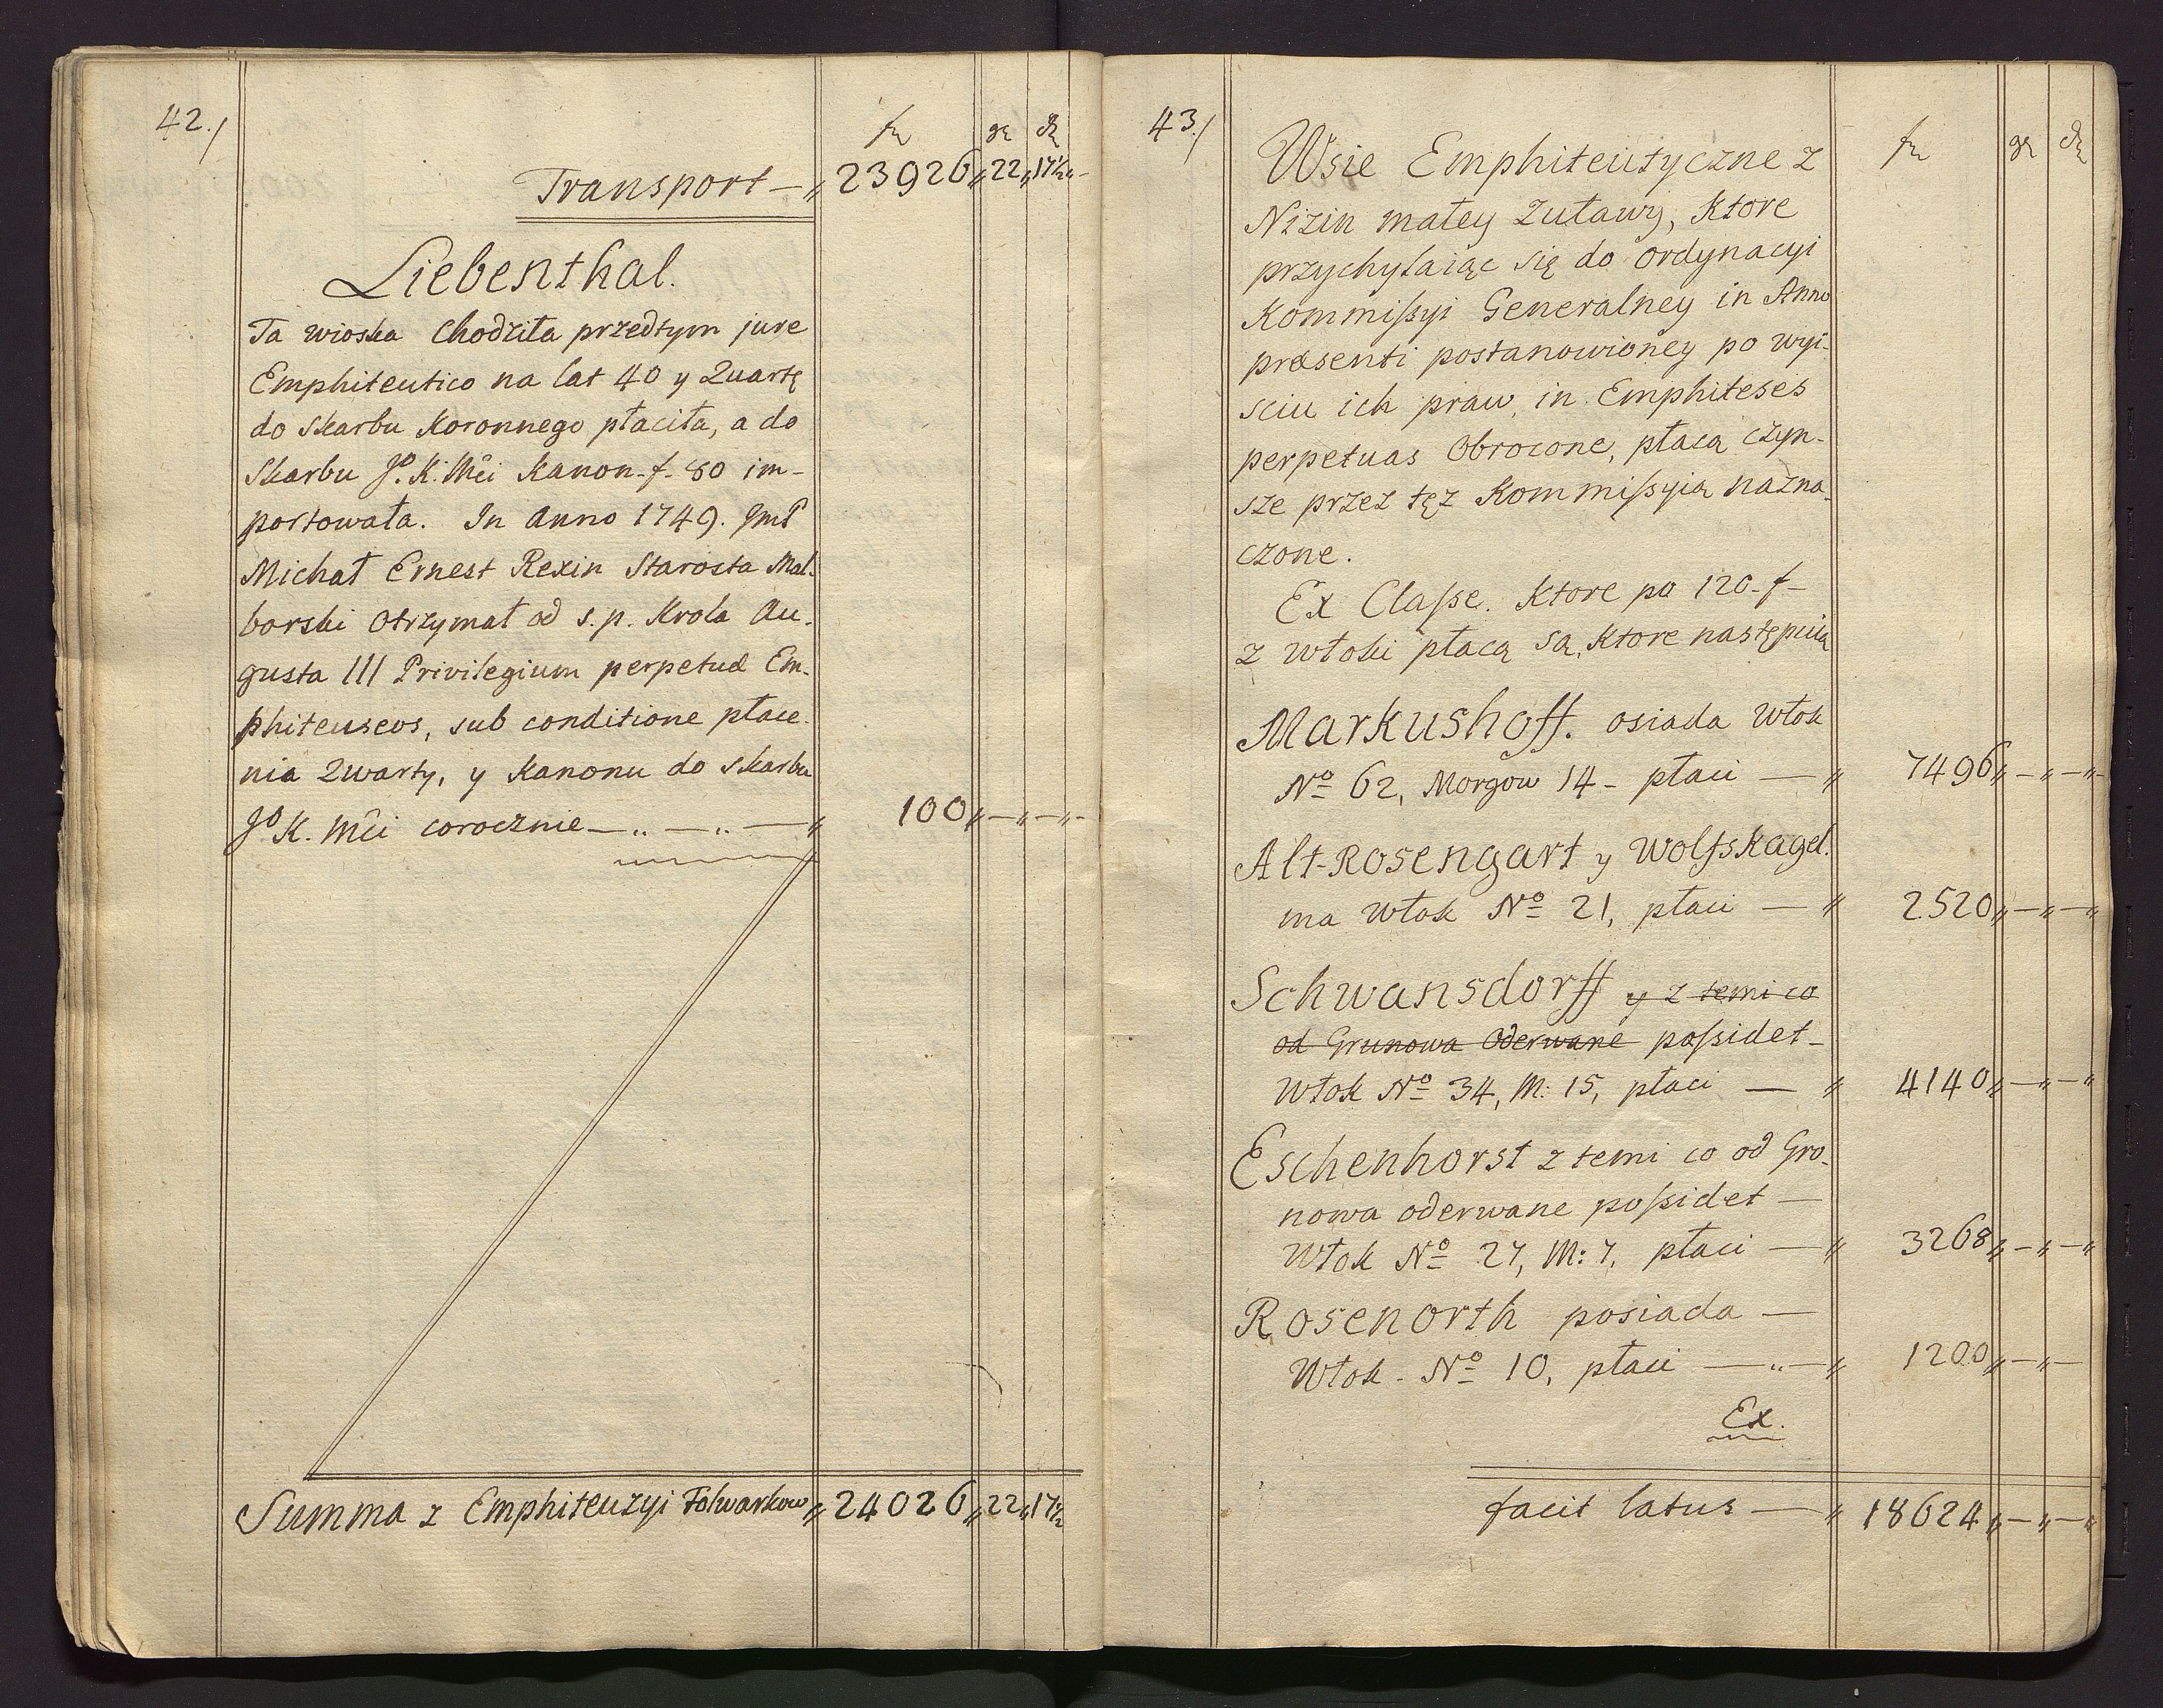 42./
fl gr d
Transport — „ 23926 „ 22 „ 17½ „ -
Liebenthal.
Ta wioska Chodziła przedtym jure
Emphiteutico na lat 40 y Quartę
do Skarbu Koronnego płaciła, a do
Skarbu Jº. K. Mci Kanon - f - 80 im-
portowała. In Anno 1749. JmP
Michał Ernest Rexin Starosta Mal-
borski otrzymał od s. p. Krola Au-
gusta III Privilegium perpetuæ Em-
phiteuseos, sub conditione płace-
nia Qwarty, y Kanonu do Skarbu
Jº K. Mci corocznie — „ — „ — „ 100 „ — „ — „ -
Summa z Emphiteuzyi Folwarkow „ 24026 „ 22 „ 17½
43./
fl gr d
Wsie Emphiteutyczne z
Nizin małey Zuławy, Ktore
przychylaiąc się do ordynacyi
Kommissyi Generalney in Anno
præsenti postanowioney po wyi-
sciu ich praw, in Emphiteses
perpetuas Obrocone, płacą czyn-
sze przez tęz Kommissyią nazna-
czone.
Ex Classe. Ktore po 120 - f -
z włoki płacą są, Ktore następuią
Markushoff. osiada włok
Nº 62, Morgow 14 - płaci — „ 7496 „ — „ — „ -
Alt-Rosengart y Wolfskagel.
ma włok Nº 21, płaci — „ 2520 „ — „ — „
Schwansdorff y z temi co
od Grunowa Oderwane possidet -
Włok Nº 34, M: 15, płaci — „ 4140 „ — „ — „
Eschenhorst z temi co od Gro-
nowa oderwane possidet —
Włok Nº 27, M: 7, płaci — „ 3268 „ — „ — „
Rosenorth posiada —
Włok - Nº 10, płaci — „ — „ 1200 „ — „ —
Ex.
facit latus — „ 18624 „ — „ — „